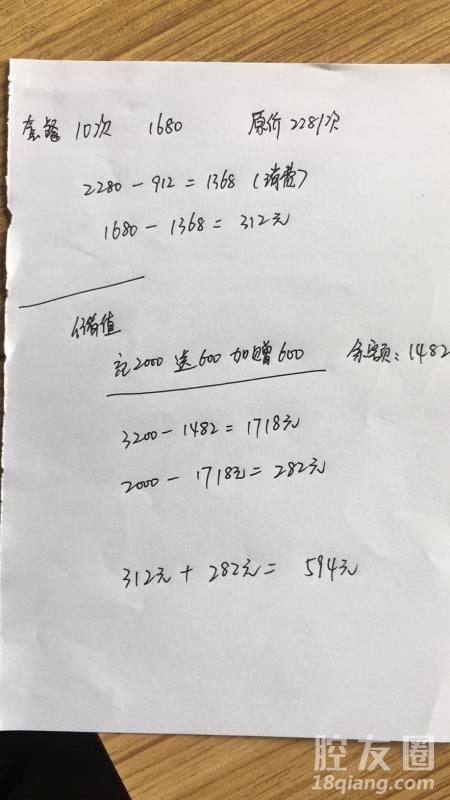 套餐 10次 1680 原价 228/次
2280 - 912 = 1368 (消费)
1680 - 1368 = 312元
储值
充2000 送600 加赠600 余额: 1482
3200 - 1482 = 1718元
2000 - 1718元 = 282元
312元 + 282元 = 594元
腔友圈
18qiang.com